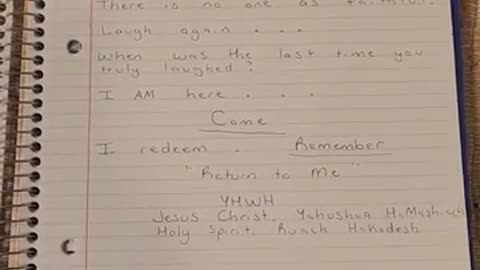 There is no one as faithful.
Laugh again . . .
When was the last time you
truly laughed?
I AM here . . .
Come
I redeem . Remember
"Return to Me"
YHWH
Jesus Christ, Yahushua HaMashiach
Holy Spirit, Ruach HaKodesh